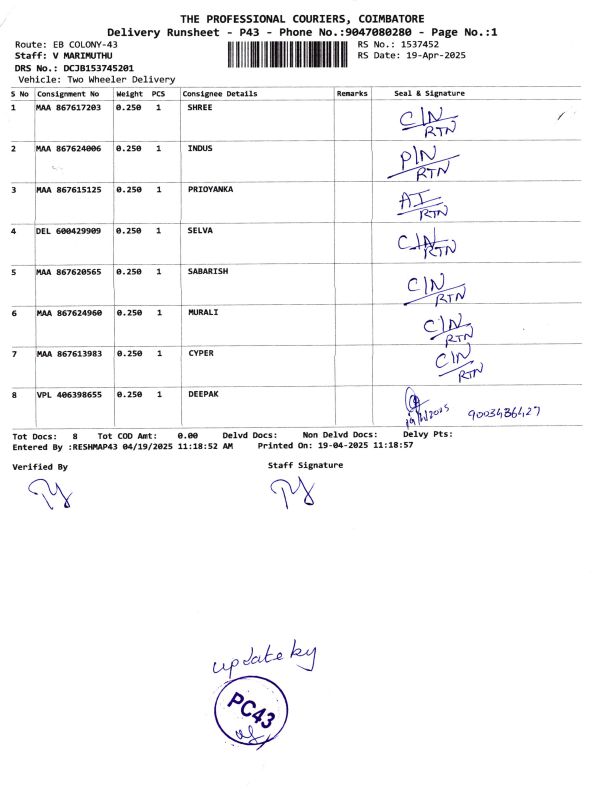 THE PROFESSIONAL COURIERS, COIMBATORE
Delivery Runsheet - P43 - Phone No.:9047080280 - Page No.:1
Route: EB COLONY-43 RS No.: 1537452
Staff: V MARIMUTHU RS Date: 19-Apr-2025
DRS No.: DCJB153745201
Vehicle: Two Wheeler Delivery
S No Consignment No Weight PCS Consignee Details Remarks Seal & Signature
1 MAA 867617203 0.250 1 SHREE C/N
RTN
2 MAA 867624006 0.250 1 INDUS P/N
RTN
3 MAA 867615125 0.250 1 PRIOYANKA AI
RTN
4 DEL 600429909 0.250 1 SELVA C/N
RTN
5 MAA 867620565 0.250 1 SABARISH C/N
RTN
6 MAA 867624960 0.250 1 MURALI C/N
RTN
7 MAA 867613983 0.250 1 CYPER C/N
RTN
8 VPL 406398655 0.250 1 DEEPAK
Tot Docs: 8 Tot COD Amt: 0.00 Delvd Docs: Non Delvd Docs: Delvy Pts:
Entered By :RESHMAP43 04/19/2025 11:18:52 AM Printed On: 19-04-2025 11:18:57
Verified By Staff Signature
update by
PC43